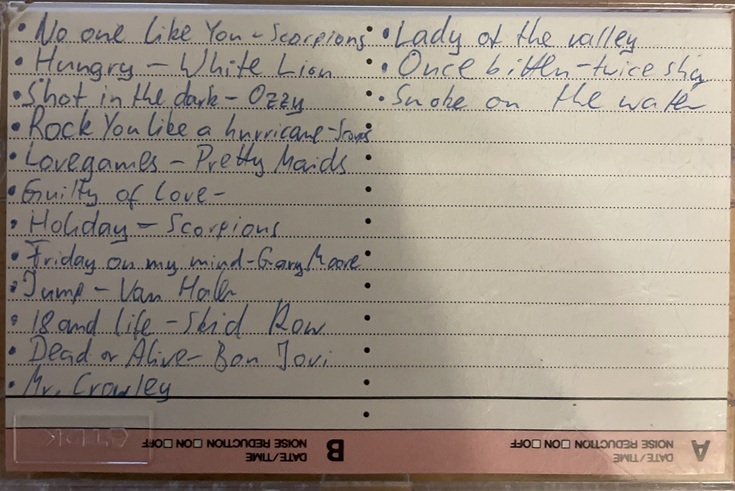 • No one like You - Scorpions
• Hungry - White Lion
• Shot in the dark - Ozzy
• Rock You like a hurricane -
• Lovegames - Pretty Maids
• Guilty of love -
• Holiday - Scorpions
• Friday on my mind - Gary Moore
• Jump - Van Halen
• 18 and life - Skid Row
• Dead or Alive - Bon Jovi
• Mr. Crowley
• Lady of the valley
• Once bitten - twice shy
• Smoke on the water
A
DATE/TIME
NOISE REDUCTION □ON □OFF
B
DATE/TIME
NOISE REDUCTION □ON □OFF
TDK